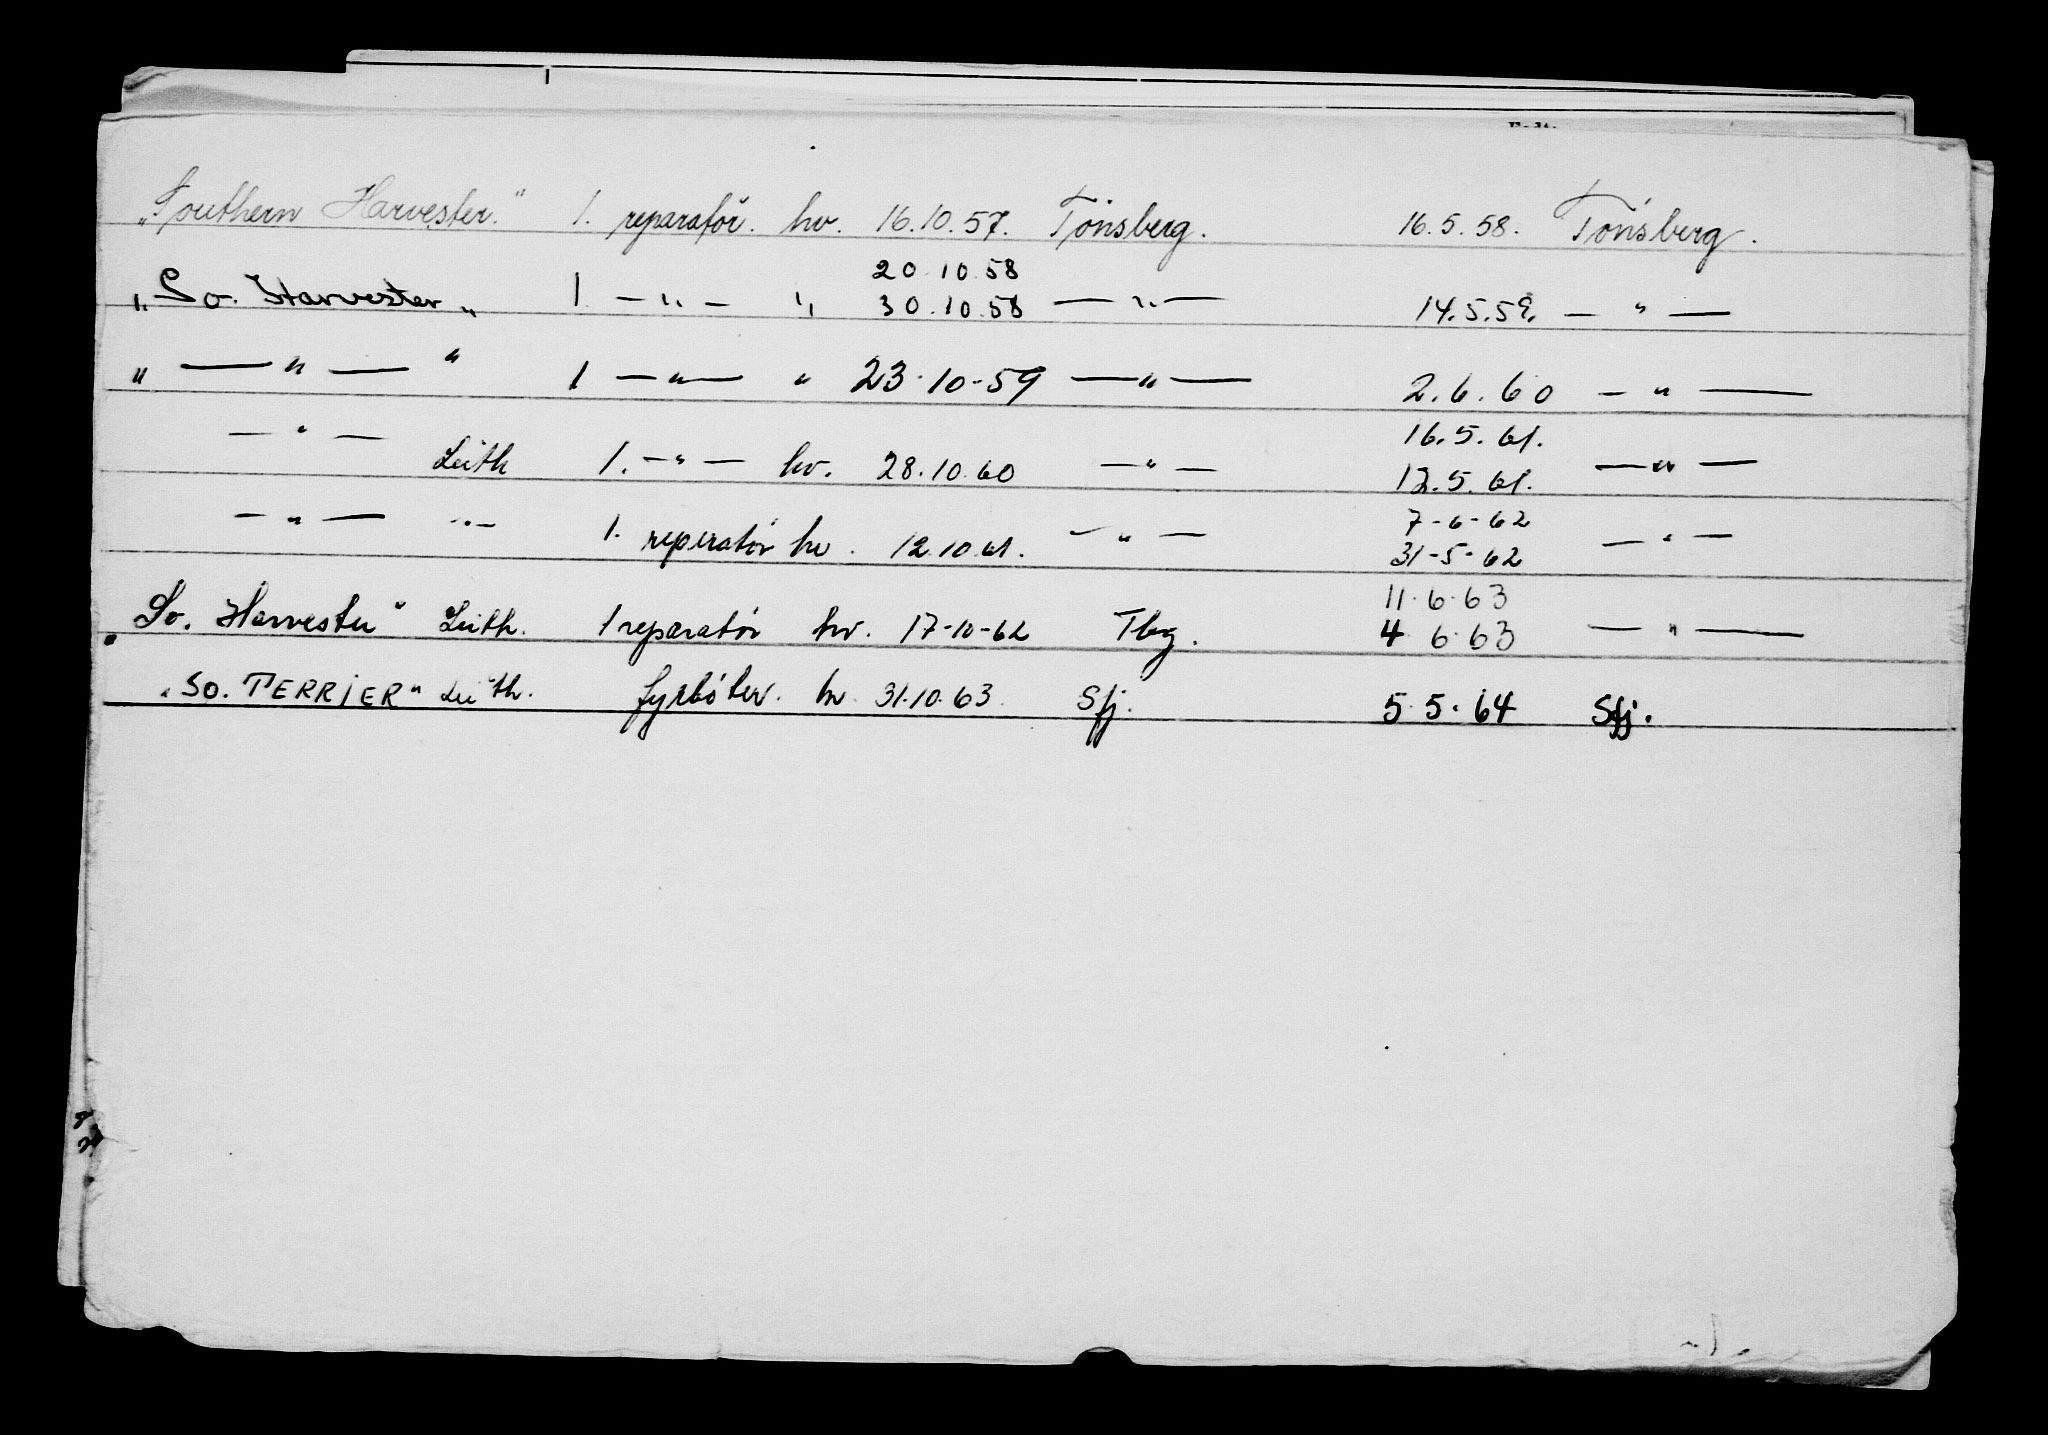 „Southern Harvester." 1. reparatör. hv. 16.10.57. Tönsberg. 16.5.58. Tönsberg.
20.10.58
„So. Harvester„ 1 — „ — „ 30.10.58 — „ — 14.5.59. — " —
„ — „ — " 1 — „ — " 23.10-59 — „ — 2.6.60 — „ —
— " — 16.5.61.
Leith 1. — „ — hv. 28.10.60 — " — 12.5.61. — „ —
— „ — — " — 1. reparatör hv. 12.10.61. — „ — 7-6-62
31-5-62 — " —
11.6.63
„So. Harvester" Leith. 1 reparatör hv. 17-10-62 Tbg. 4 6.63 — " —
„SO. TERRIER" Leith. fyrböter. hv 31.10.63. Sfj. 5.5.64 Sfj.